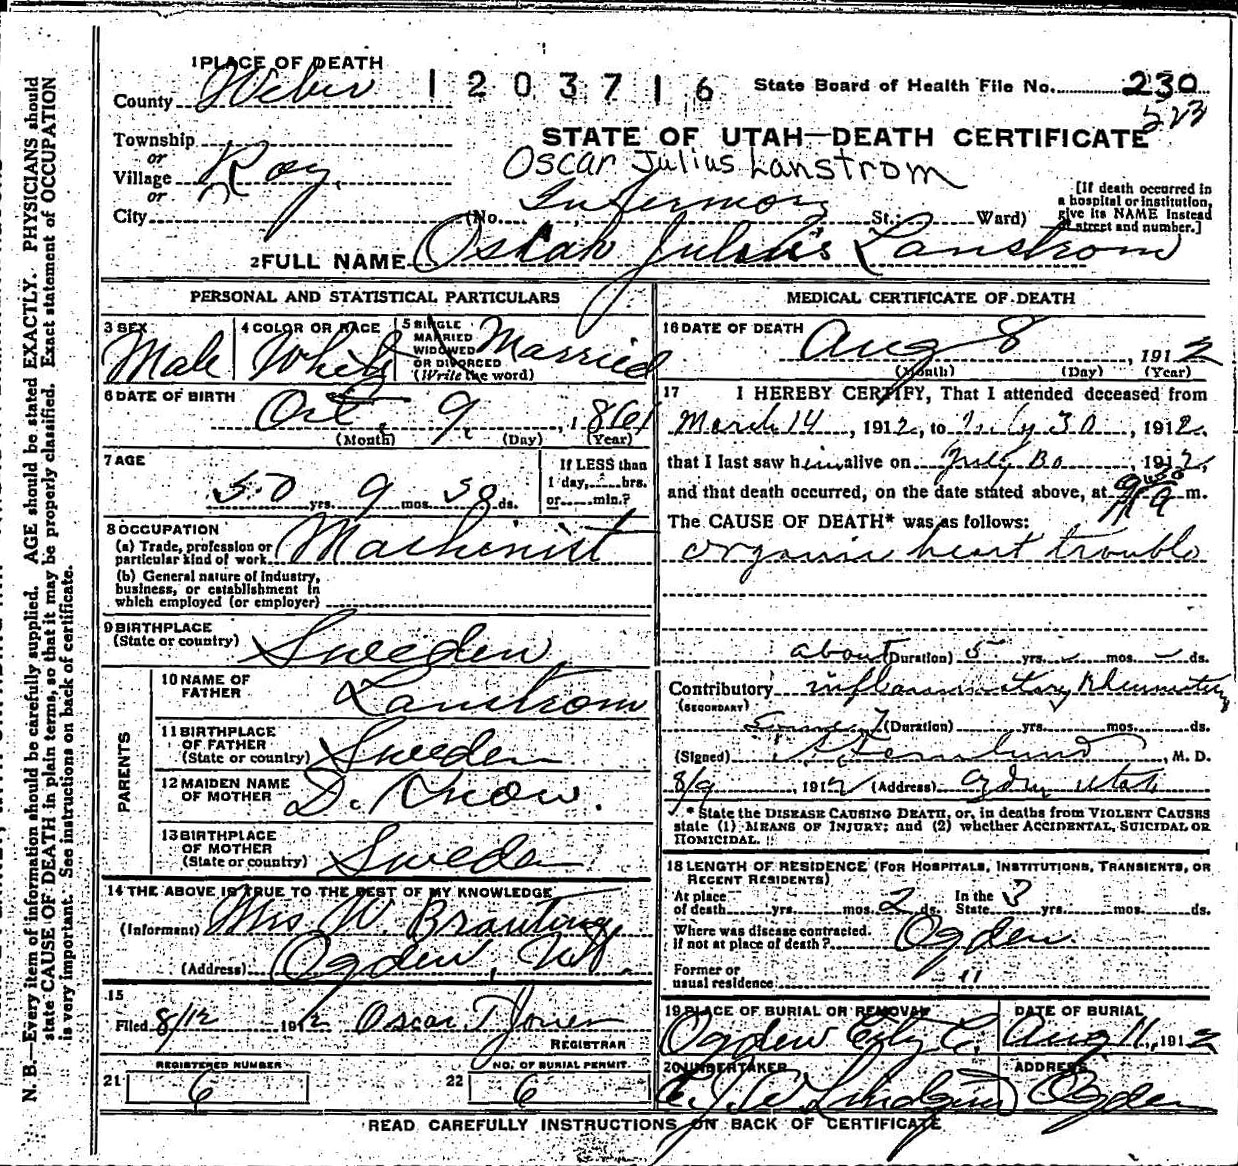 1 PLACE OF DEATH
County Weber
1203716
State Board of Health File No. 230
223
STATE OF UTAH—DEATH CERTIFICATE
Township
or
Village Roy
or
City
Oscar Julius Lanstrom
(No. Infermory St.; Ward)
[If death occurred in
a hospital or institution,
give its NAME instead
of street and number.]
2 FULL NAME Oscar Julius Lanstrom
PERSONAL AND STATISTICAL PARTICULARS
3 SEX Male
4 COLOR OR RACE White
5 SINGLE
MARRIED
WIDOWED
OR DIVORCED
(Write the word) Married
6 DATE OF BIRTH Oct. 9, 1861
(Month) (Day) (Year)
7 AGE
50 yrs. 9 mos. ds.
If LESS than
1 day, hrs.
or min.?
8 OCCUPATION
(a) Trade, profession or
particular kind of work Machinist
(b) General nature of industry,
business, or establishment in
which employed (or employer)
9 BIRTHPLACE
(State or country) Sweden
PARENTS
10 NAME OF
FATHER Lanstrom
11 BIRTHPLACE
OF FATHER
(State or country) Sweden
12 MAIDEN NAME
OF MOTHER D. Know.
13 BIRTHPLACE
OF MOTHER
(State or country) Sweden
14 THE ABOVE IS TRUE TO THE BEST OF MY KNOWLEDGE
(Informant) Mrs W. Branting
(Address) Ogden, Ut.
15
Filed 8/12 1912 Oscar T Jones
REGISTRAR
REGISTERED NUMBER
21 6
NO. OF BURIAL PERMIT
22 6
MEDICAL CERTIFICATE OF DEATH
16 DATE OF DEATH Aug 8, 1912
(Month) (Day) (Year)
17 I HEREBY CERTIFY, That I attended deceased from
March 14, 1912, to July 30, 1912,
that I last saw him alive on July 30, 1912,
and that death occurred, on the date stated above, at m.
The CAUSE OF DEATH* was as follows:
organic heart trouble
about (Duration) 5 yrs. – mos. – ds.
Contributory inflammitary Rheumatism
(SECONDARY)
(Duration) yrs. mos. ds.
(Signed) M. D.
8/9, 1912 (Address) Ogden Utah
* State the DISEASE CAUSING DEATH, or, in deaths from VIOLENT CAUSES
state (1) MEANS OF INJURY; and (2) whether ACCIDENTAL, SUICIDAL OR
HOMICIDAL.
18 LENGTH OF RESIDENCE (FOR HOSPITALS, INSTITUTIONS, TRANSIENTS, OR
RECENT RESIDENTS)
At place
of death yrs. mos. 2 ds.
In the
State 3 yrs. mos. ds.
Where was disease contracted.
if not at place of death? Ogden.
Former or
usual residence "
19 PLACE OF BURIAL OR REMOVAL Ogden City C.
DATE OF BURIAL Aug 11, 1912
20 UNDERTAKER Lindquist
ADDRESS Ogden
READ CAREFULLY INSTRUCTIONS ON BACK OF CERTIFICATE
N. B.—Every item of information should be carefully supplied. AGE should be stated EXACTLY. PHYSICIANS should
state CAUSE OF DEATH in plain terms, so that it may be properly classified. Exact statement of OCCUPATION
is very important. See instructions on back of certificate.